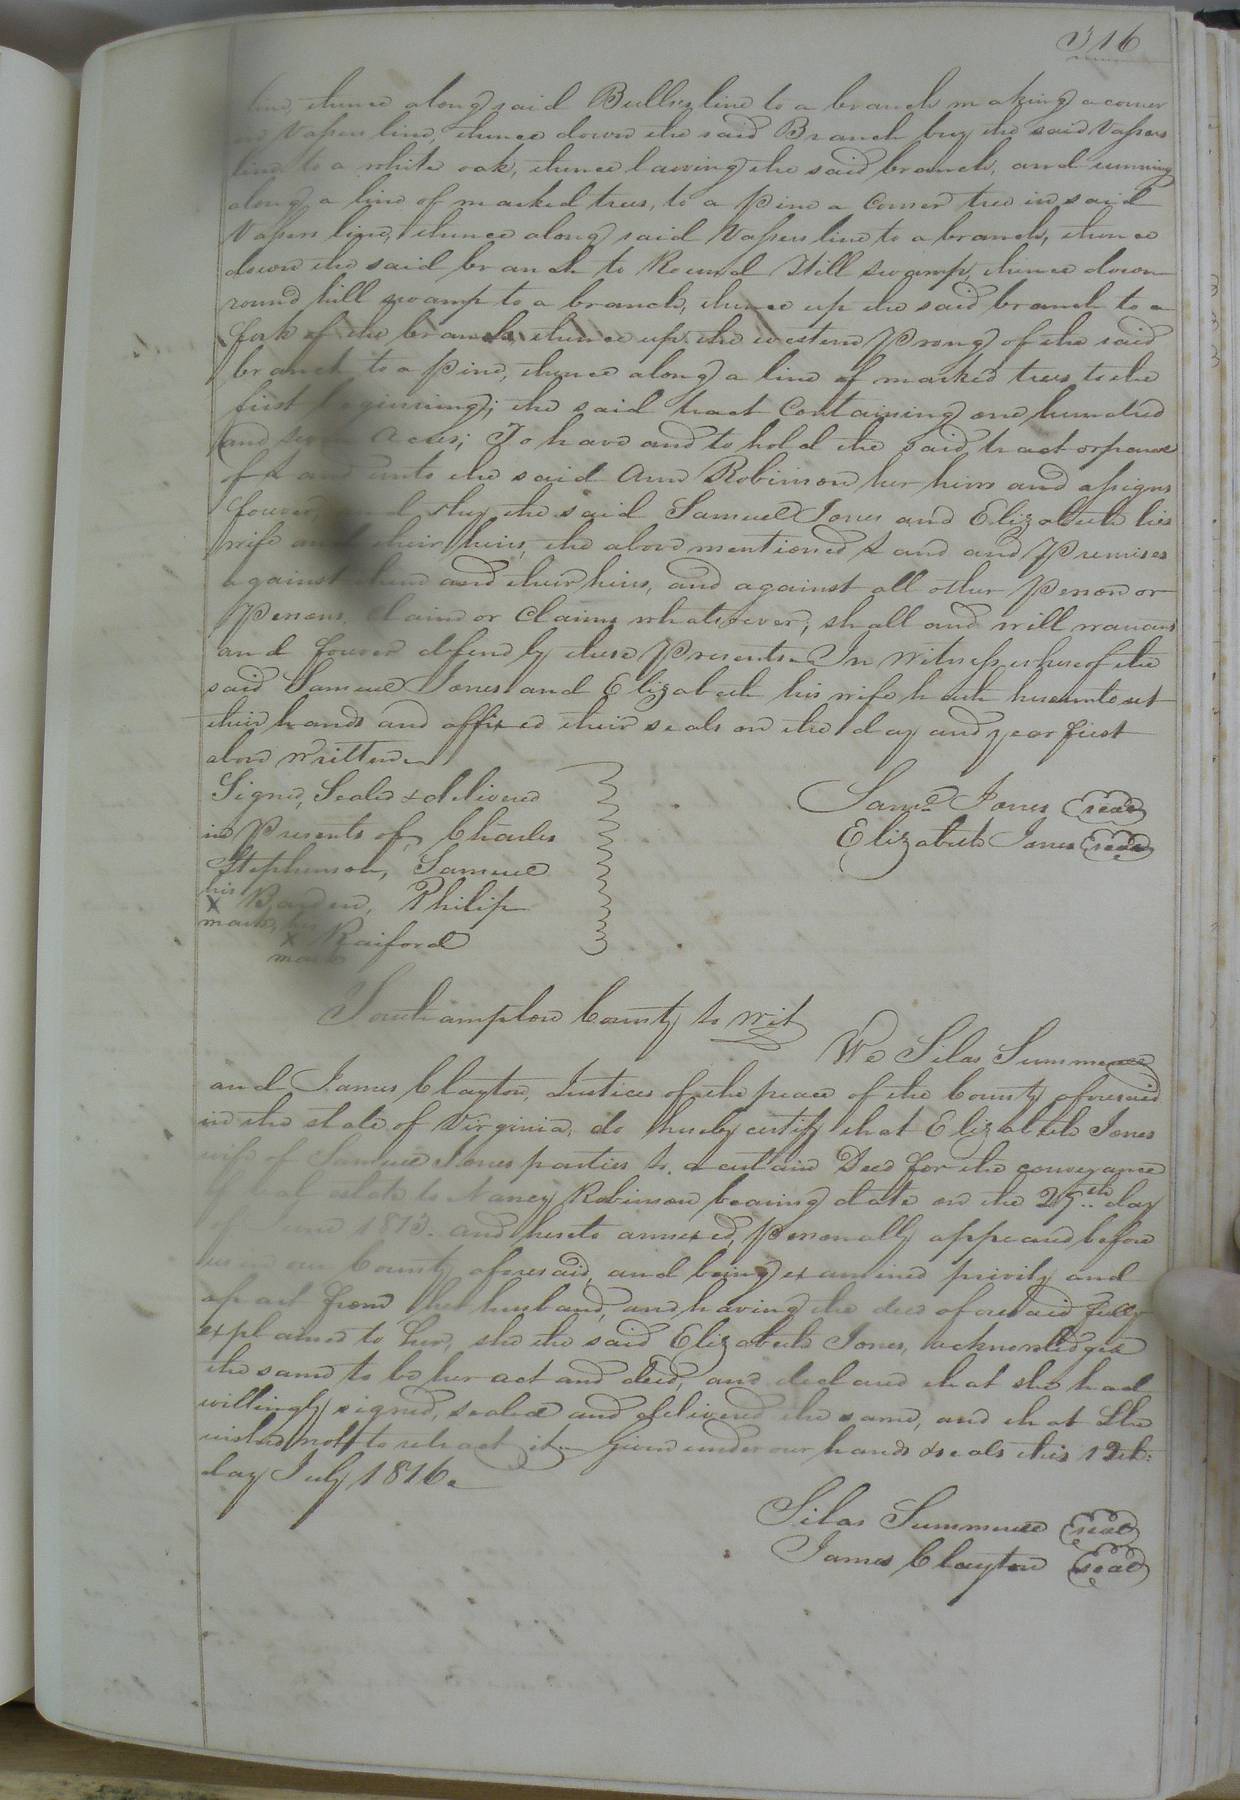 316
line, thence along said Bulls line to a branch making a corner
in Vasers line, thence down the said Branch by the said Vasers
line to a white oak, thence leaving the said branch, and running
along a line of marked trees, to a pine a corner tree in said
Vasers line, thence along said Vasers line to a branch, thence
down the said branch to Round Hill swamp, thence down
round hill swamp to a branch, thence up the said branch to a
fork of the branch, thence up the western prong of the said
branch to a pine, thence along a line of marked trees to the
first beginning; the said tract Containing one hundred
and Acres; To have and to hold the said tract or parcel
of L and unto the said Ann Robinson her heirs and assigns
forever, and they the said Samuel Jones and Elizabeth his
wife and their heirs, the above mentioned Land and Premises
against them and their heirs, and against all other Person or
Persons, claim or Claims whatsoever, shall and will warrant
and forever defend by these Presents. In Witness whereof the
said Samuel Jones and Elizabeth his wife hath hereunto set
their hands and affixed their seals on the day and year first
above written.
Signed, Sealed & delivered
in Presents of, Charles
Stephenson, Samuel
his
X Barden, Philip
mark, his
X Raiford
mark
Saml. Jones seal
Elizabeth Jones seal
Southampton County to wit
We Silas Summerell
and James Clayton, Justices of the peace of the County aforesaid
in the state of Virginia, do hereby certify that Elizabeth Jones
wife of Samuel Jones parties to a certain Deed for the conveyance
of real estate to Nancy Robinson bearing date on the 25th. day
of June 1813. and hereto annexed, personally appeared before
us in our County aforesaid, and being examined privily and
apart from her husband, and having the deed aforesaid fully
explained to her, she the said Elizabeth Jones, acknowledged
the same to be her act and deed, and declared that she had
willingly signed, sealed and delivered the same, and that She
wished not to retract it. Given under our hands & seals this 12th.
day July 1816.
Silas Summerell seal
James Clayton seal